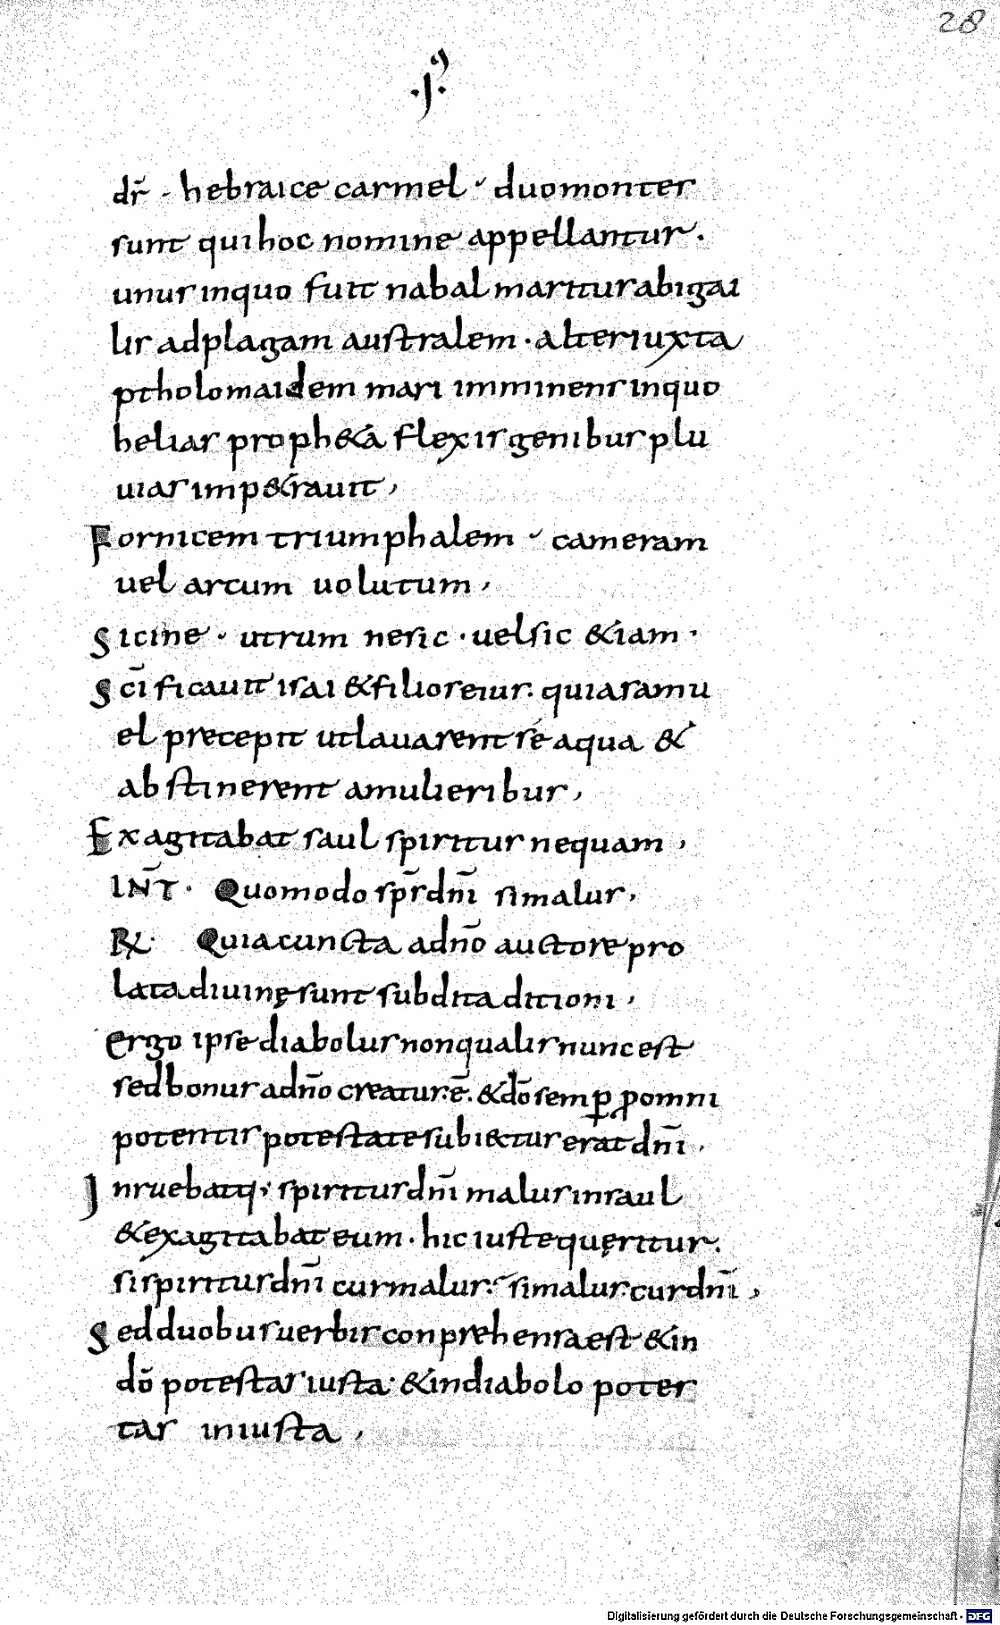 28
.I⁹.
dr̄ · hebraice carmel · duo montes
sunt qui hoc nomine appellantur.
unus in quo fuit nabal maritus abigai
lis ad plagam australem · alter iuxta
ptholomaidem mari imminens in quo
helias proph&a flexis genibus plu
uias imp&rauit,
Fornicem triumphalem · cameram
uel arcum uolutum,
Sicine · utrum ne sic · uel sic &iam ·
Sc̄ificauit isai & filios eius. quia samu
el precepit ut lauarent se aqua &
abstinerent a mulieribus,
Exagitabat saul spiritus nequam,
INT̄ · Quomodo spr̄ dnī si malus,
R̷ · Quia cuncta a dnō auctore pro
lata diuinę sunt subdita ditioni,
ergo ipse diabolus non qualis nunc est
sed bonus a dnō creatus ē. & dō semꝑ ꝓ omni
potentis potestate subi&tus erat dnī,
Inruebatq; spiritus dnī malus in saul
& exagitabat eum · hic iuste quęritur.
si spiritus dnī cur malus. si malus cur dnī,
Sed duobus uerbis conprehensa est & in
dō potestas iusta · & in diabolo potes
tas iniusta,
Digitalisierung gefördert durch die Deutsche Forschungsgemeinschaft - DFG